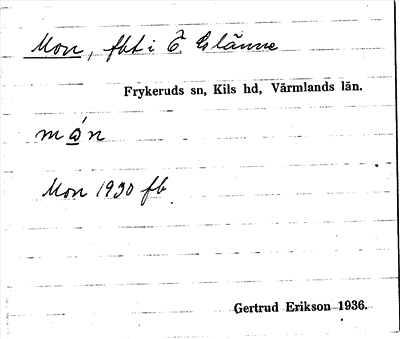 Mon, fbt i Ö. Glänne
Frykeruds sn, Kils hd, Värmlands län.
mån
Mon 1930 fb.
Gertrud Erikson 1936.